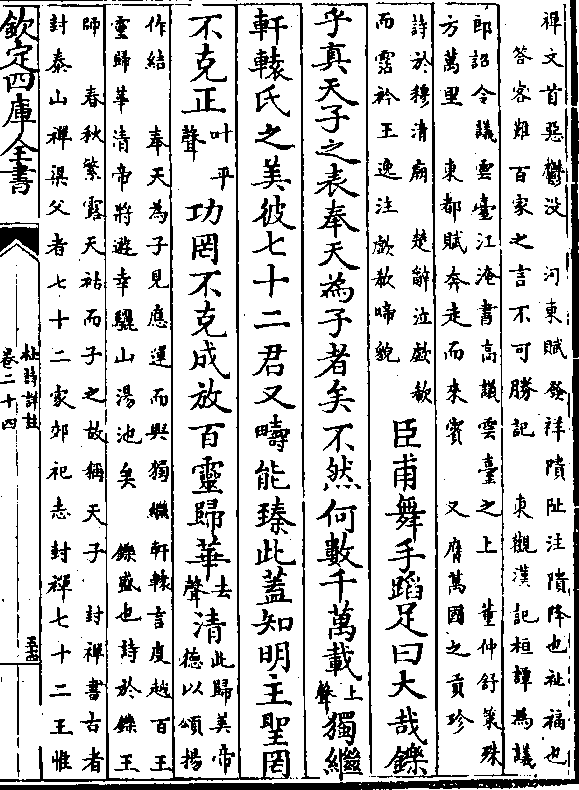 禪文首惡鬱没　河東賦發祥隤趾注隤降也祉福也
答客難百家之言不可勝記　東觀漢記桓譚為議
郎詔令議雲臺江淹書高議雲臺之上　董仲舒策殊
方萬里　東都賦奔走而來賓　又膺萬國之貢珍
詩於穆清廟　楚辭泣歔欷
而霑衿王逸注歔欷啼貌
臣甫舞手蹈足曰大哉鑠
乎真天子之表奉天為子者矣不然何數千萬載上聲獨繼
軒轅氏之美彼七十二君又疇能臻此蓋知明主聖罔
不克正叶平聲功罔不克成放百靈歸華去聲清此歸美帝德以頌揚
作結　奉天為子見應運而興獨繼軒轅言度越百王
靈歸華清帝將遊幸驪山湯池矣　鑠盛也詩於鑠王
師　春秋繁露天祜而子之故稱天子　封禪書古者
封泰山禪梁父者七十二家郊祀志封禪七十二王惟
欽定四庫全書
杜詩詳註
卷二十四